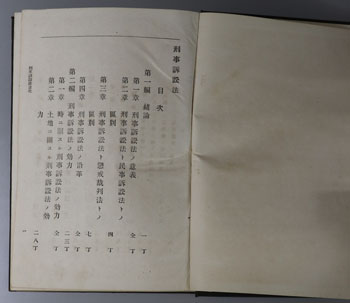 刑事訴訟法
目次
第一編 緒論
第一章 刑事訴訟法ノ意義 一丁
第二章 刑事訴訟法ト民事訴訟法トノ
區別 全丁
第三章 刑事訴訟法ト懲戒裁判法トノ
區別 四丁
第四章 刑事訴訟法ノ沿革 七丁
第二編 刑事訴訟法ノ効力 二三丁
第一章 時ニ關スル刑事訴訟法ノ効力 全丁
第二章 土地ニ關スル刑事訴訟法ノ効
力 二八丁